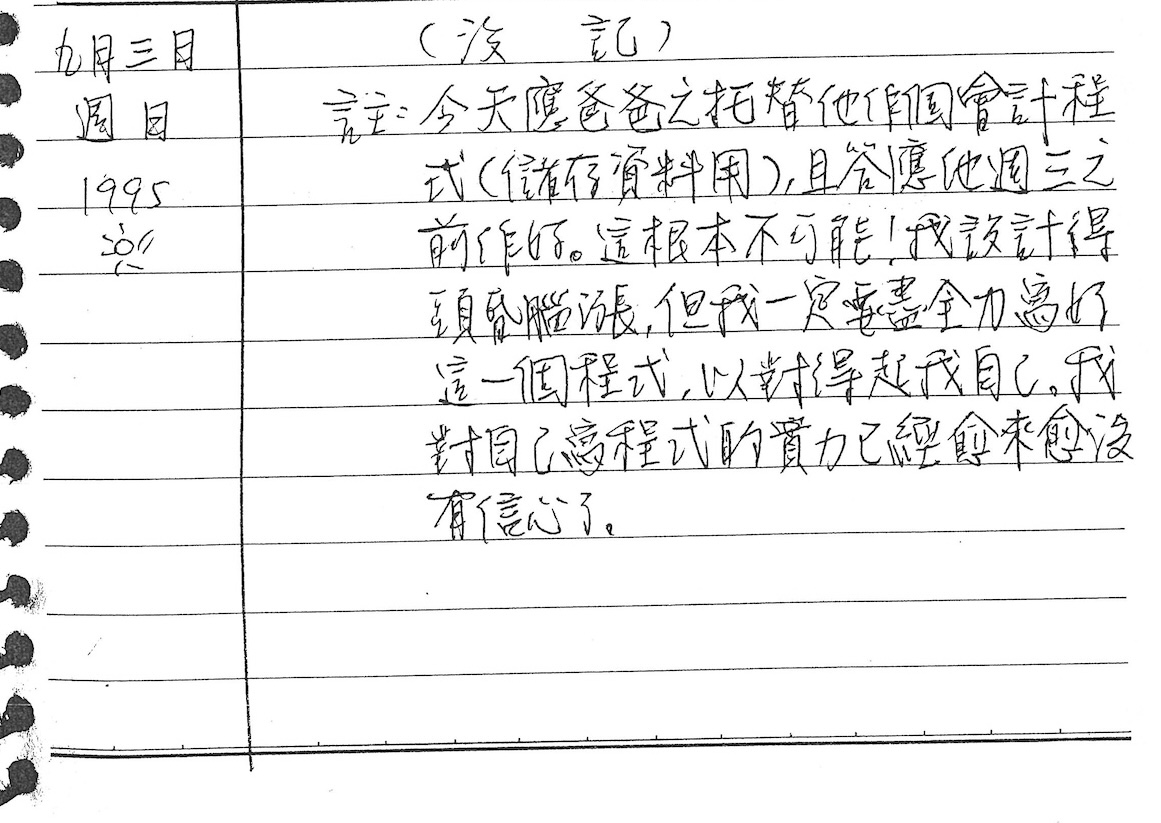 九月三日
週日
1995
（沒 記）
註：今天應爸爸之托替他作個會計程
式(儲存資料用)，且答應他週三之
前作好。這根本不可能！我設計得
頭昏腦漲，但我一定要盡全力寫好
這一個程式，以對得起我自己。我
對自己寫程式的實力已經愈來愈沒
有信心了。